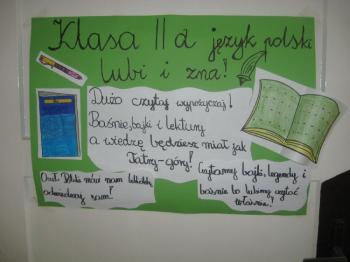 Klasa II a język polski
lubi i zna!
Dużo czytaj wypożyczaj!
Baśnie, bajki i lektury
a wiedzę będziesz miał jak
Tatry-góry!
nam
sam?
Czytamy bajki, legendy i
baśnie bo lubimy czytać
właśnie!